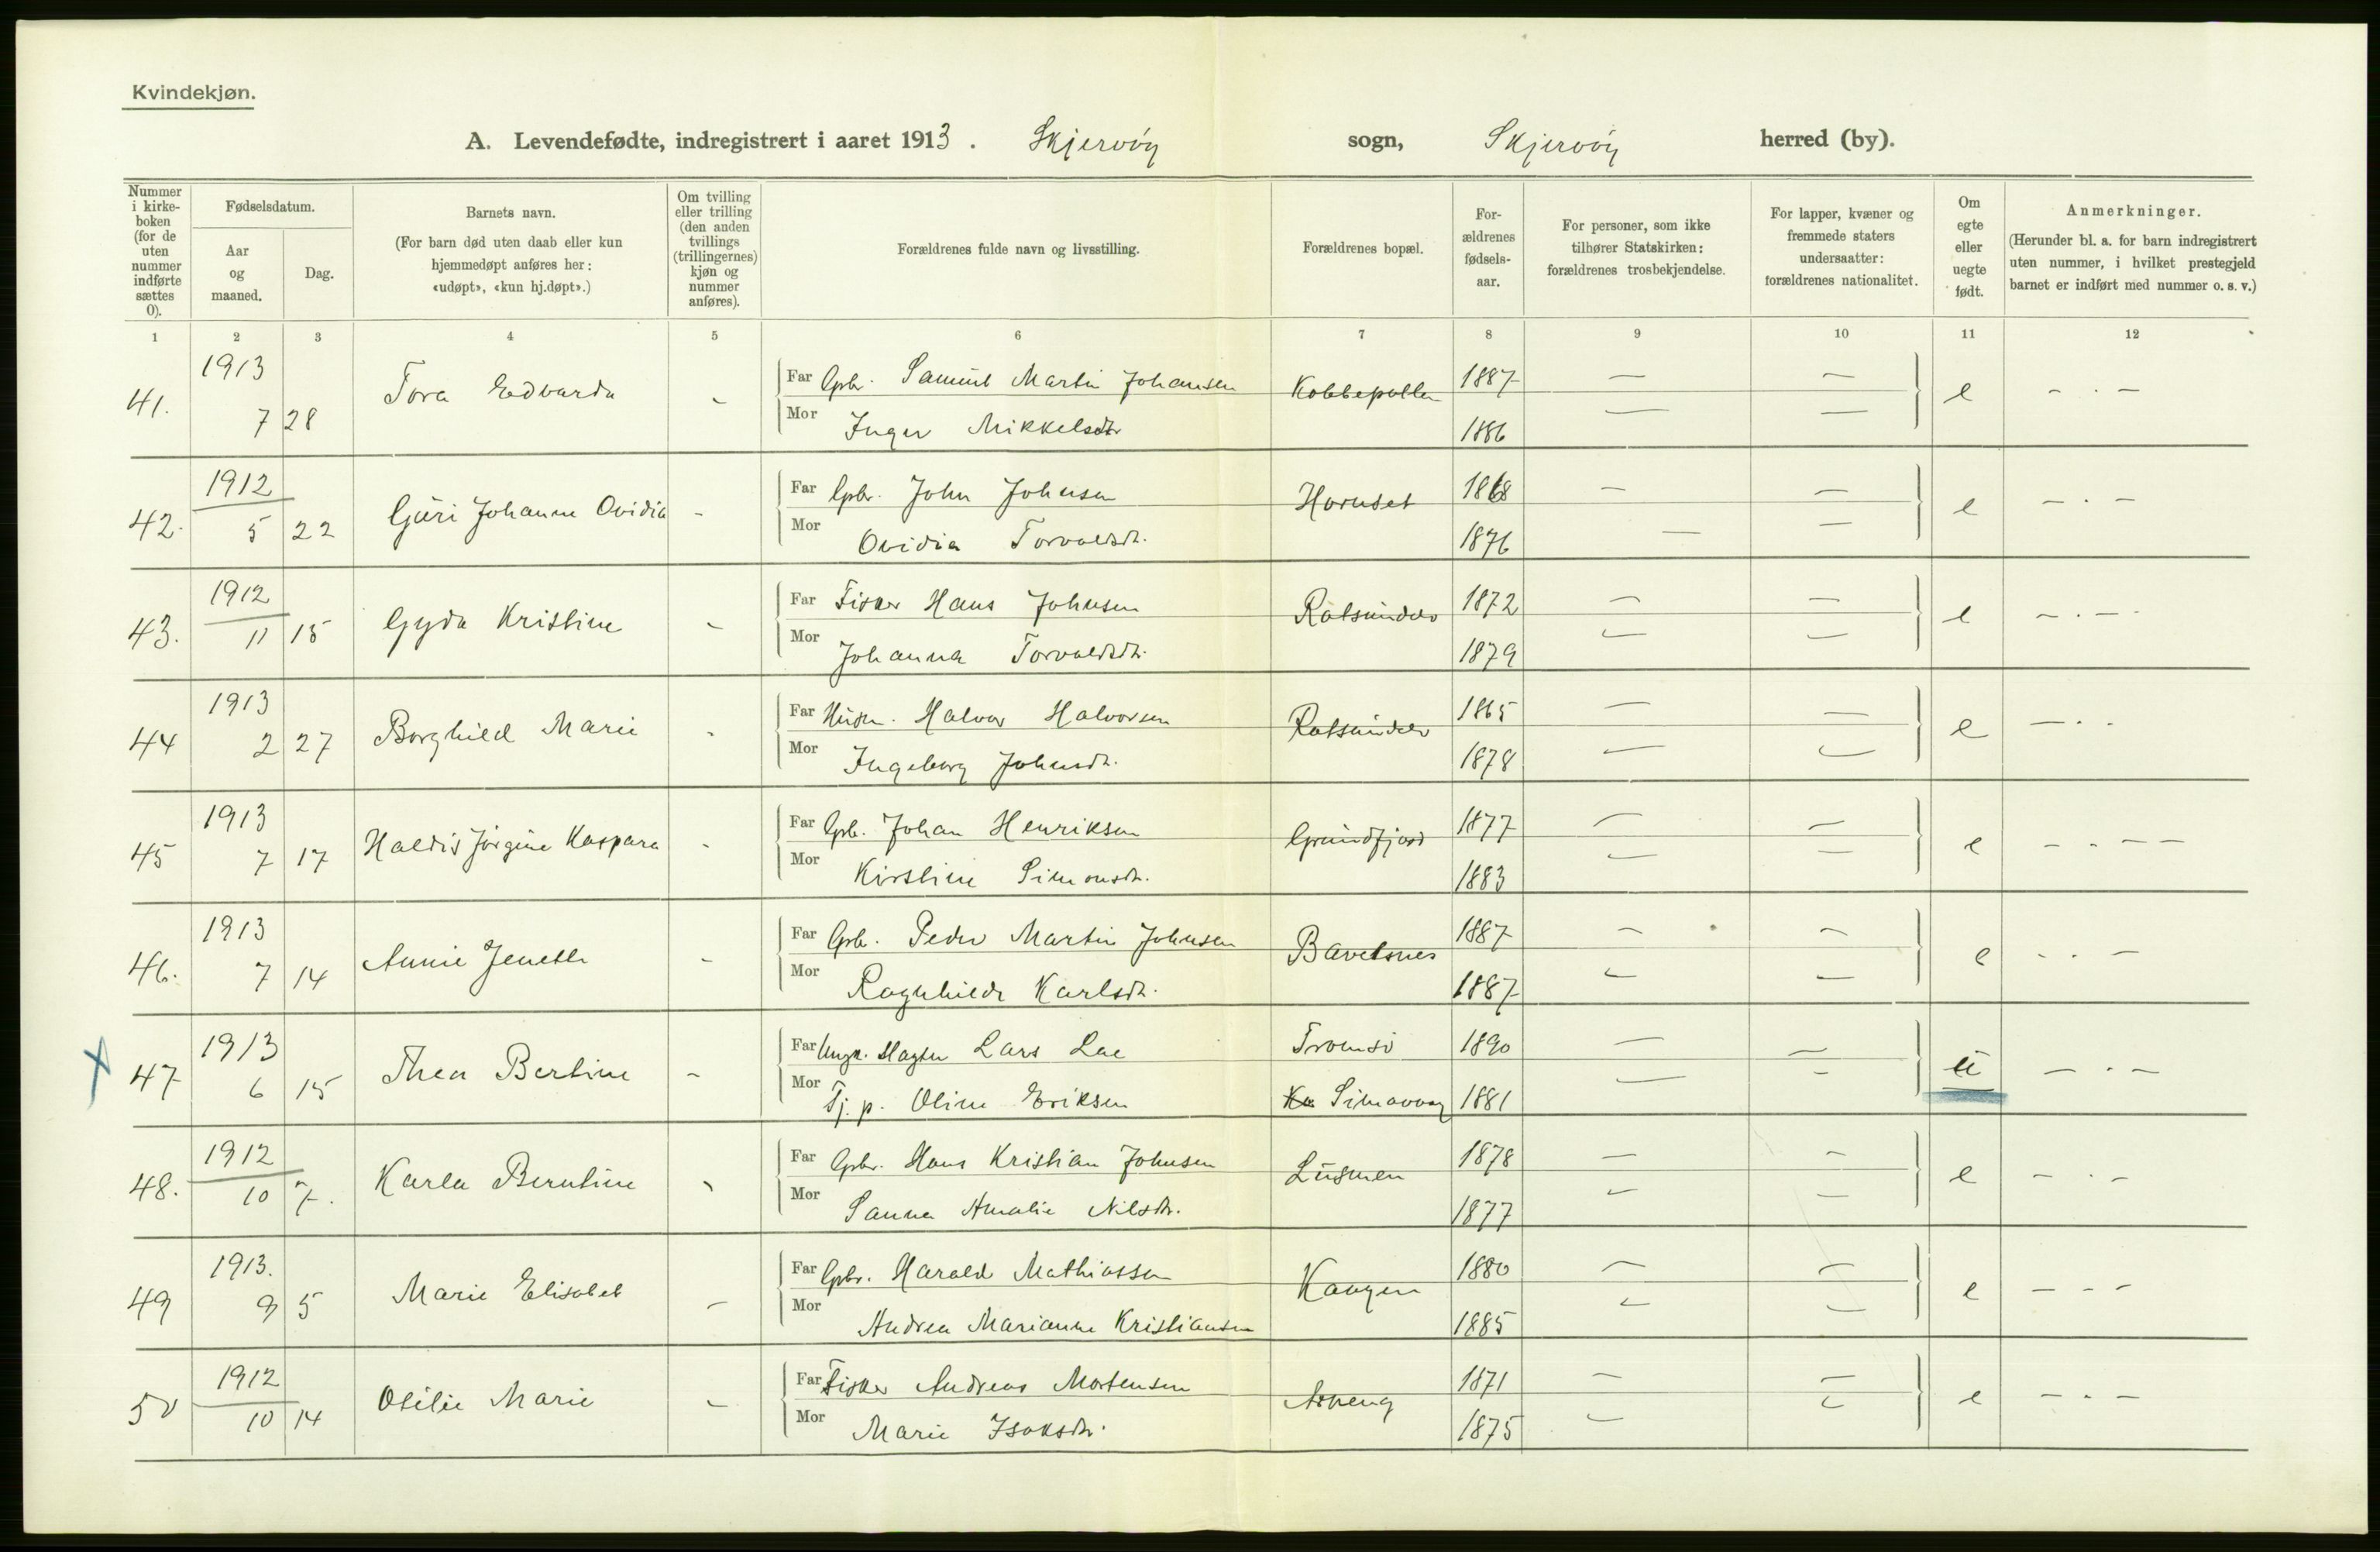 Kvindekjøn.
A. Levendefødte, indregistrert i aaret 1913. Skjervöy sogn, Skjervöy herred (by).
Nummer i kirke-boken (for de uten nummer indførte sættes 0).
Fødselsdatum.
Aar og maaned.
Dag.
Barnets navn.
(For barn død uten daab eller kun hjemmedøpt anføres her: «udøpt», «kun hj.døpt».)
Om tvilling eller trilling (den anden tvillings (trillingernes) kjøn og nummer anføres).
Forældrenes fulde navn og livsstilling.
Forældrenes bopæl.
For-ældrenes fødsels-aar.
For personer, som ikke tilhører Statskirken: forældrenes trosbekjendelse.
For lapper, kvæner og fremmede staters undersaatter: forældrenes nationalitet.
Om egte eller uegte født.
Anmerkninger.
(Herunder bl. a. for barn indregistrert uten nummer, i hvilket prestegjeld barnet er indført med nummer o. s. v.)
1 2 3 4 5 6 7 8 9 10 11 12
41. 1913 7 28 Tora Edvarda - Far Gpbr. Samuel Martin Johansen Kobbepollen 1887 — — e - . -
Mor Inger Mikkelsdtr 1886 — —
42. 1912 5 22 Guri Johanne Ovidia - Far Gpbr. John Johnsen Hornset 1868 — — e - . -
Mor Ovidia Torvaldsdt. 1876 — —
43. 1912 11 15 Gyda Kristine - Far Fisker Hans Johnsen Rotsundelv 1872 — — e - . - .
Mor Johanna Torvaldsdt. 1879 — —
44 1913 2 27 Borghild Marie - Far Husm. Halvor Halvorsen Rotsundelv 1865 — — e — . .
Mor Ingeborg Johnsdt. 1878 — —
45 1913 7 17 Haldis Jörgine Kaspara - Far Gpb. Johan Henriksen Grundfjord 1877 — — e - . - -
Mor Kirstine Simonsdt. 1883 — —
46. 1913 7 14 Annie Jenette - Far Gpb. Peder Martin Johnsen Bavelsnes 1887 — — e . . -
Mor Ragnhildr Karlsdt. 1887 — —
X 47 1913 6 15 Thea Bertine - Far Ungk. Slagter Lars Lae Tromsö 1890 — — u — . -
Mor Tj. p. Oline Eriksen Ka Simavaag 1881 — -
48. 1912 10 7. Karla Berntine - Far Gpbr. Hans Kristian Johnsen 1878 — — e - . -
Mor Sanna Amalie Nilsdt. 1877 — —
49 1913. 9 5 Marie Elisabet - Far Gpbr. Harald Mathiassen Kaagen 1880 — — e - - -
Mor Andrea Marianne Kristiansen 1885 — —
50 1912 10 14 Otilie Marie - Far Fisker Andreas Mortensen 1871 — — e - . -
Mor Marie Isaksdt. 1875 — —